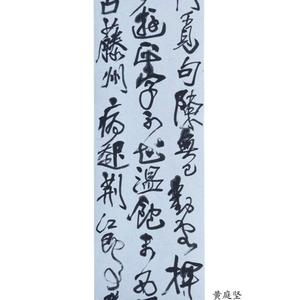 門覓句陳無己對客揮
游正字不知溫飽未西
古藤州病起荊江即事
黄庭坚